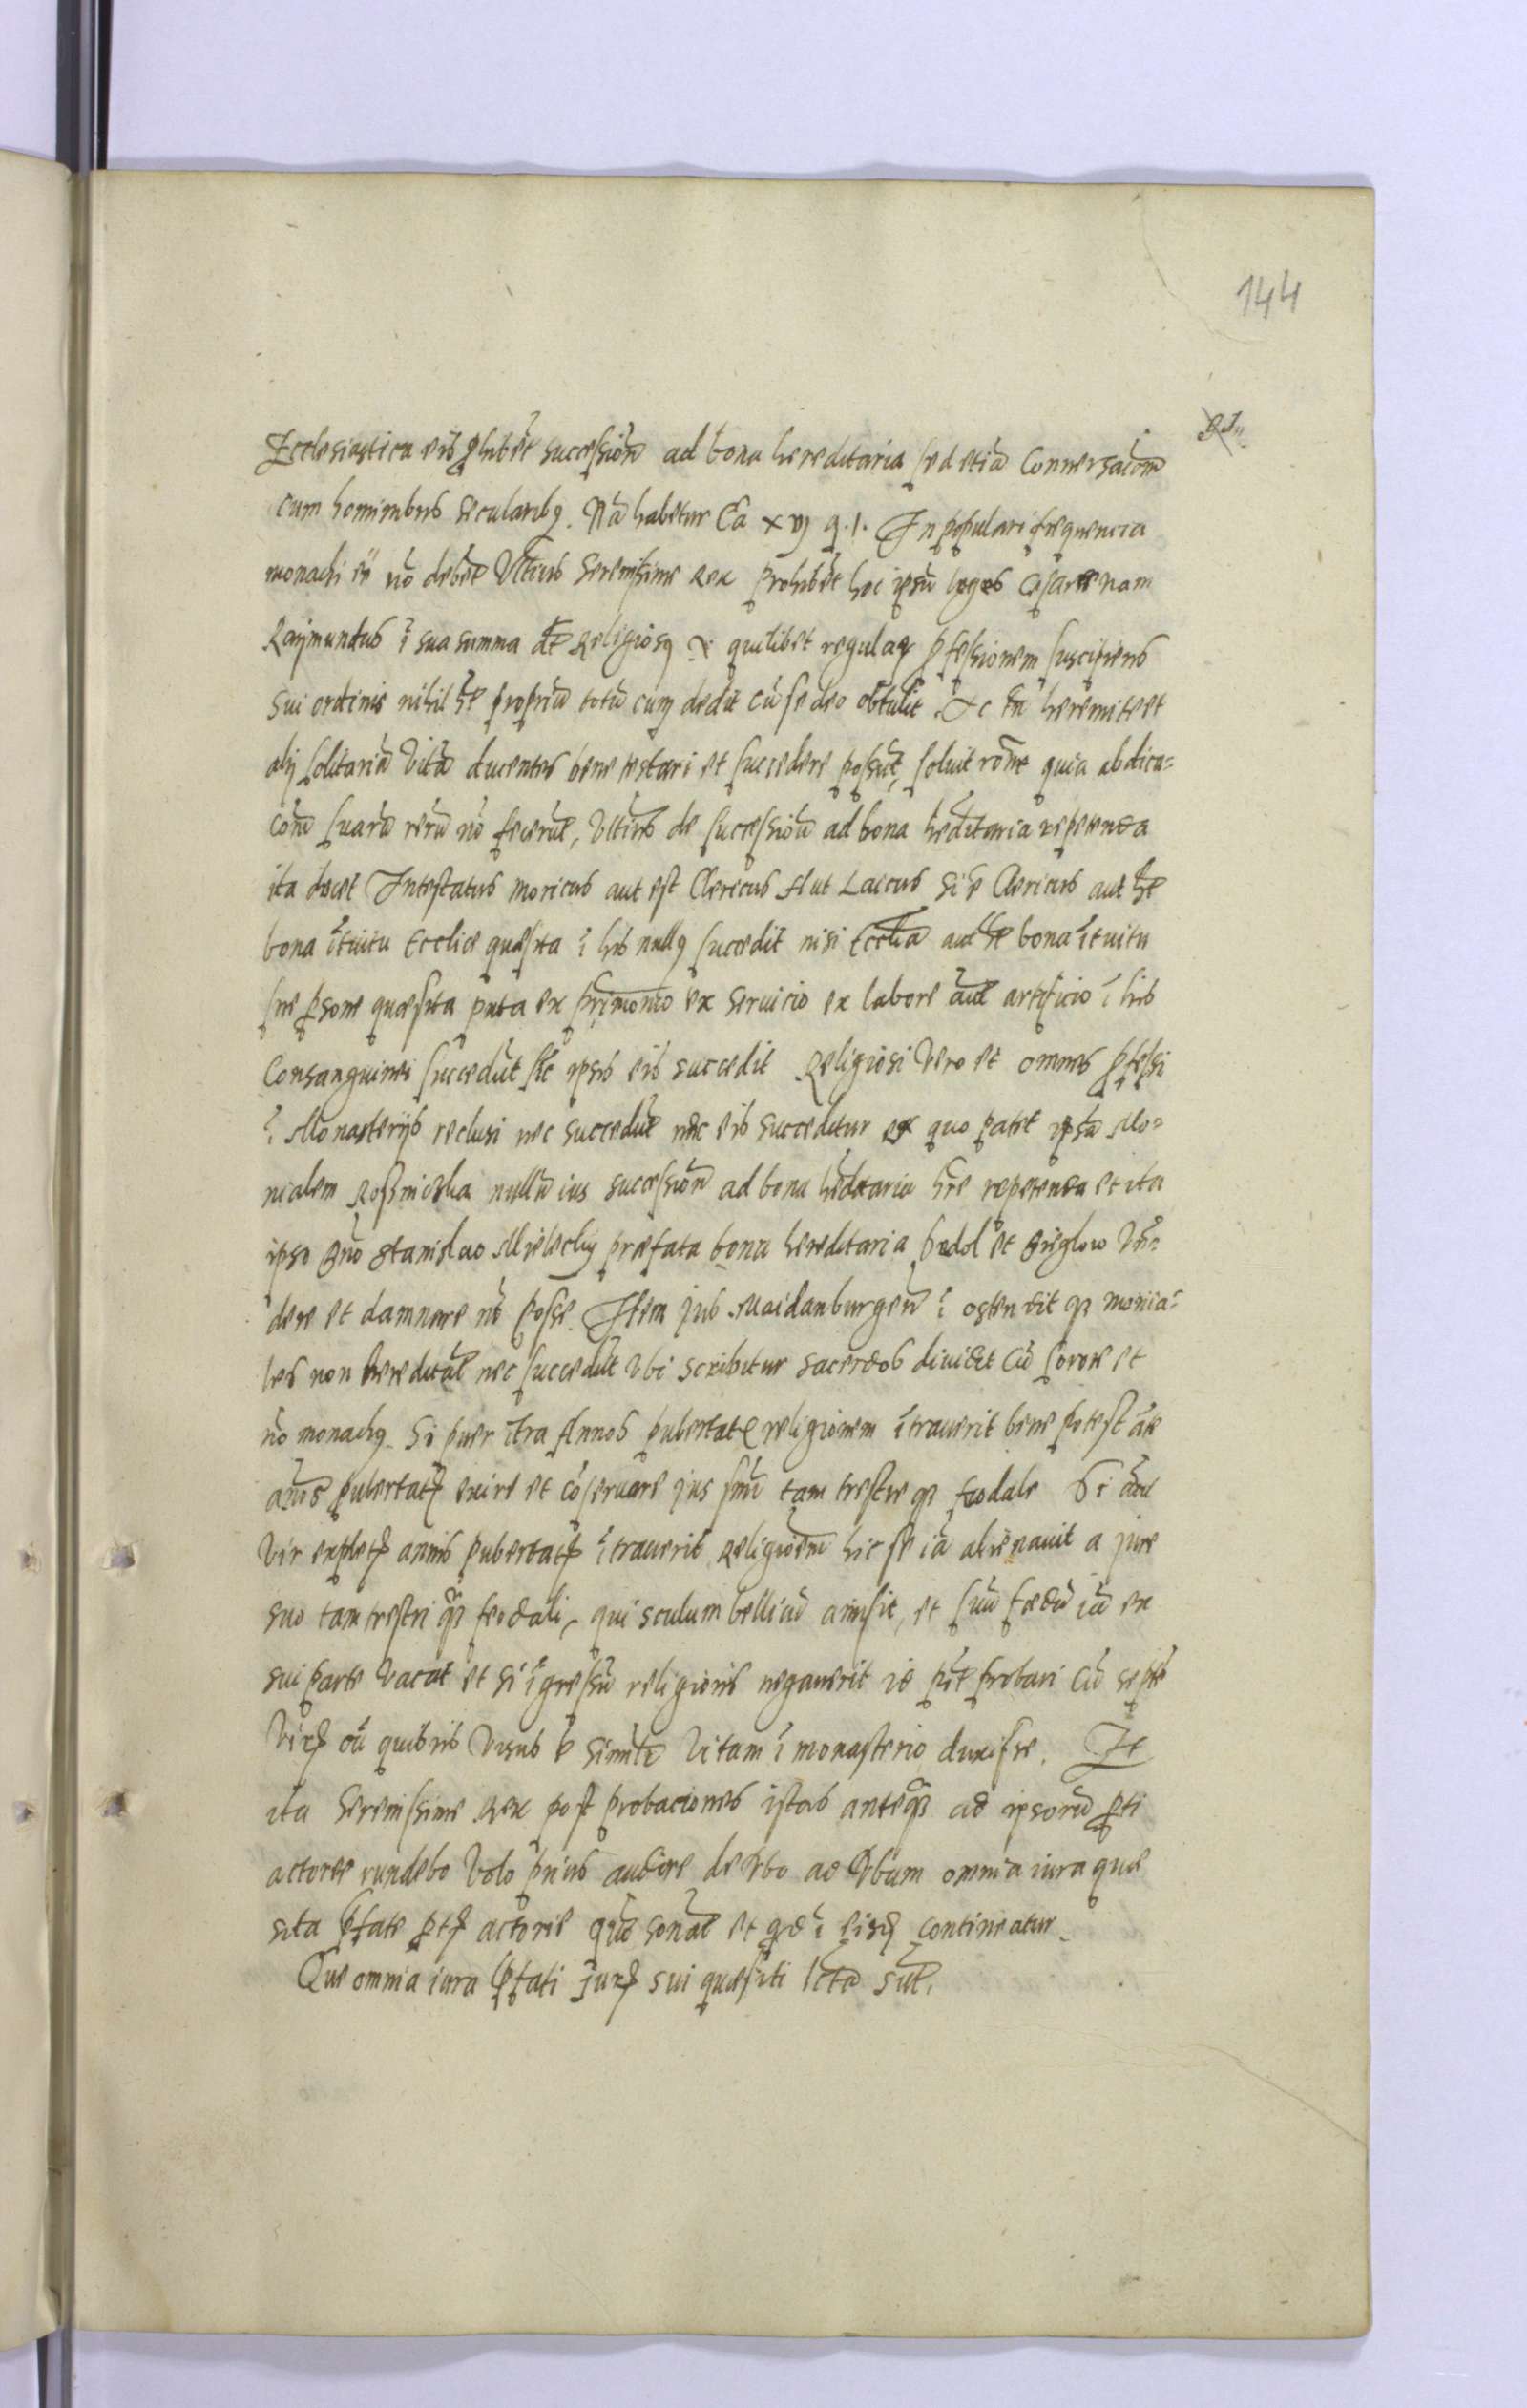 144
Ecclesiastica eis ꝓhibet successionē ad bona hereditaria sed etiā Conuersacionē
cum hominibus secularibꝰ. Nā habetur Ca xvj q. 1. In populari frequencia
monachi eē nō debēt Ulterius Serenissime Rex prohibēt hoc ipsū leges Cesaree nam
Raÿmundus ī sua summa de Religiosꝭ quilibet regulaꝝ ꝓfessionem suscipiens
sui ordinis nihil hēt propriū totū cum dedit cū se deo obtulit. Tn̄ heremite et
alij solitariā vitā ducentes bene testari et succedere possūt, soluit rōne quia abdica=
cōnē suarū rerū nō fecerūt, Ulterius de successionē ad bona hereditaria repetenda
ita docet Intestatus moriens aut est Clericus Aut Laicus Si ē Clericus aut hēt
bona ītuitu Ecclīe quæsita ī his nullꝰ succedit nisi Ecclia aut hēt bona ītuitu
sue ꝑsone quæsita puta ex prīmonio ex seruicio ex labore aut artificio ī his
Consanguinei succedūt sic ipsis eis succedit Religiosi vero et omnes ꝓfessi
ī Monasterijs reclusi nec succedūt nec eis succeditur ex quo patet ipsā Mo=
nialem nullū ius successionē ad bona hereditaria hr̄e repetenda et ita
ipso Gno Stanislao Mieleckij præfata bona hereditaria Podol et vn̄=
dere et damnare nō posse. Item jus Maidanburgen̄ ī ostendit qꝫ monia=
les non hereditāt nec succedūt Ubi scribitur sacerdos diuidit cū sorore et
nō monachꝰ. Si puer ītra Annos pubertatꝭ religionem ītrauerit bene potest āte
annos pubertatꝭ exire et cōseruare jus suū tam trestre qꝫ feodale Si aūt
vir expletꝭ annis pubertatꝭ ītrauerit Religionem hic se iā alienauit a jure
suo tam trestri qꝫ feodali, qui sculum bellicū amisit, et suū feodū iā ex
sui parte vacat et si īgressū religionis negauerit id pōt probari cū septē
virꝭ cū quibus visus ē similē vitam ī monasterio duxisse. Et
ita Serenissime Rex post probaciones istas anteqꝫ ad ipsorū ꝑti
actoree rūndebo volo prius audire de vbo ad vbum omnia iura quæ
sita p̄fate ꝑtꝭ actoris quō sonāt et qd ī eisdē contineatur.
Que omnia iura p̄fati jurꝭ sui quæsiti lcta sūt.